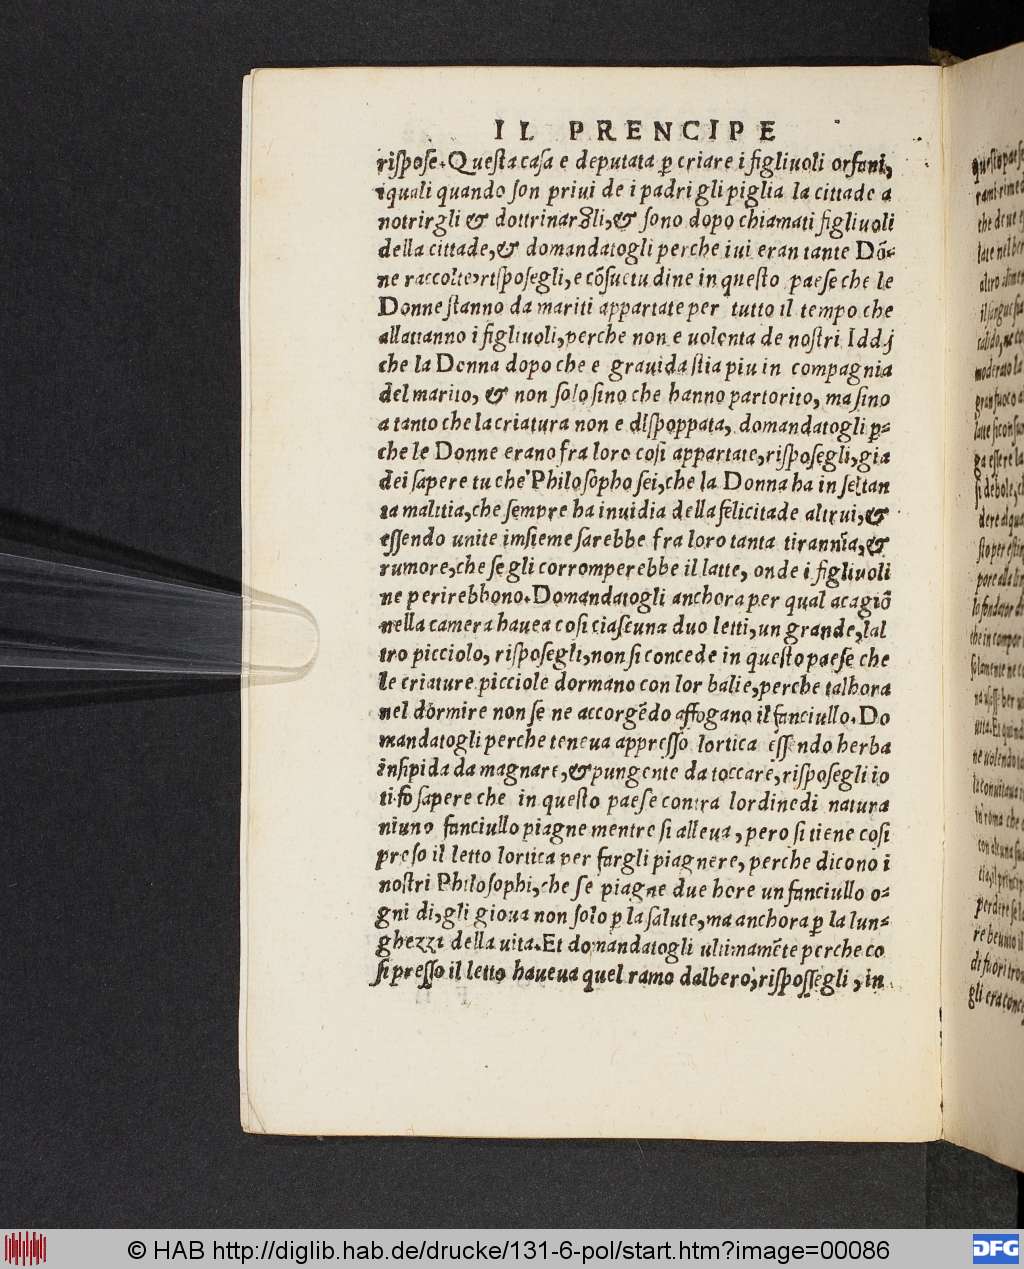 IL PRENCIPE
rispose. Questa casa e deputata ꝑ criare i figliuoli orfani,
iquali quando son priui de i padri gli piglia la cittade a
notrirgli & dottrinargli, & sono dopo chiamati figliuoli
della cittade, & domandatogli perche iui eran tante Dō-
ne raccolte, risposegli, e cōsuetudine in questo paese che le
Donne stanno da mariti appartate per tutto il tempo che
allattanno i figliuoli, perche non e uolonta de nostri Iddij
che la Donna dopo che e grauida stia piu in compagnia
del marito, & non solo sino che hanno partorito, ma sino
a tanto che la criatura non e dispoppata, domandatogli ꝑ-
che le Donne erano fra loro cosi appartate, risposegli, gia
dei sapere tu che Philosopho sei, che la Donna ha in se tan
ta malitia, che sempre ha inuidia della felicitade altrui, &
essendo unite insieme sarebbe fra loro tanta tirannia, &
rumore, che se gli corromperebbe il latte, onde i figliuoli
ne perirebbono. Domandatogli anchora per qual cagiō
nella camera hauea cosi ciascuna duo letti, un grande, lal
tro picciolo, risposegli, non si concede in questo paese che
le criature picciole dormano con lor balie, perche talhora
nel dormire non se ne accorgēdo affogano il fanciullo. Do
mandatogli perche teneua appresso lortica essendo herba
insipida da magnare, & pungente da toccare, risposegli io
ti fo sapere che in questo paese contra lordine di natura
niuno fanciullo piagne mentre si alleua, pero si tiene cosi
preso il letto lortica per fargli piagnere, perche dicono i
nostri Philosophi, che se piagne due hore un fanciullo o-
gni di, gli gioua non solo ꝑ la salute, ma anchora ꝑ la lun-
ghezza della uita. Et domandatogli ultimamēte perche co
si presso il letto haueua quel ramo dalbero, rispossegli, in
© HAB http://diglib.hab.de/drucke/131-6-pol/start.htm?image=00086
DFG